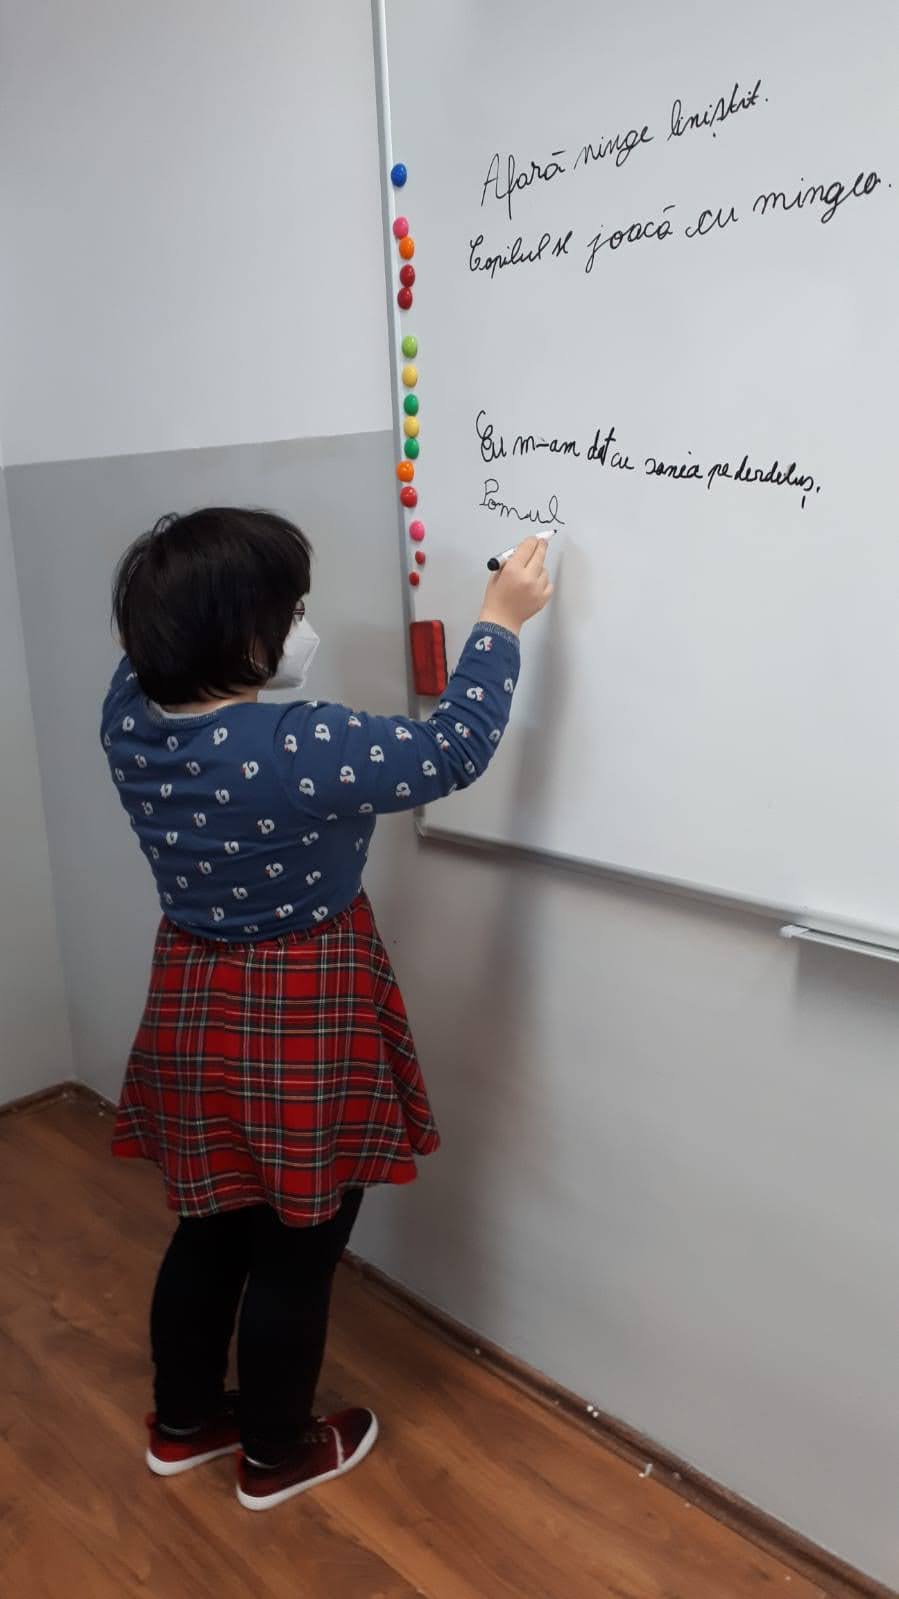 Afară ninge liniștit.
Copilul se joacă cu mingea.
Eu m-am dat cu sania pe derdeluș.
Pomul